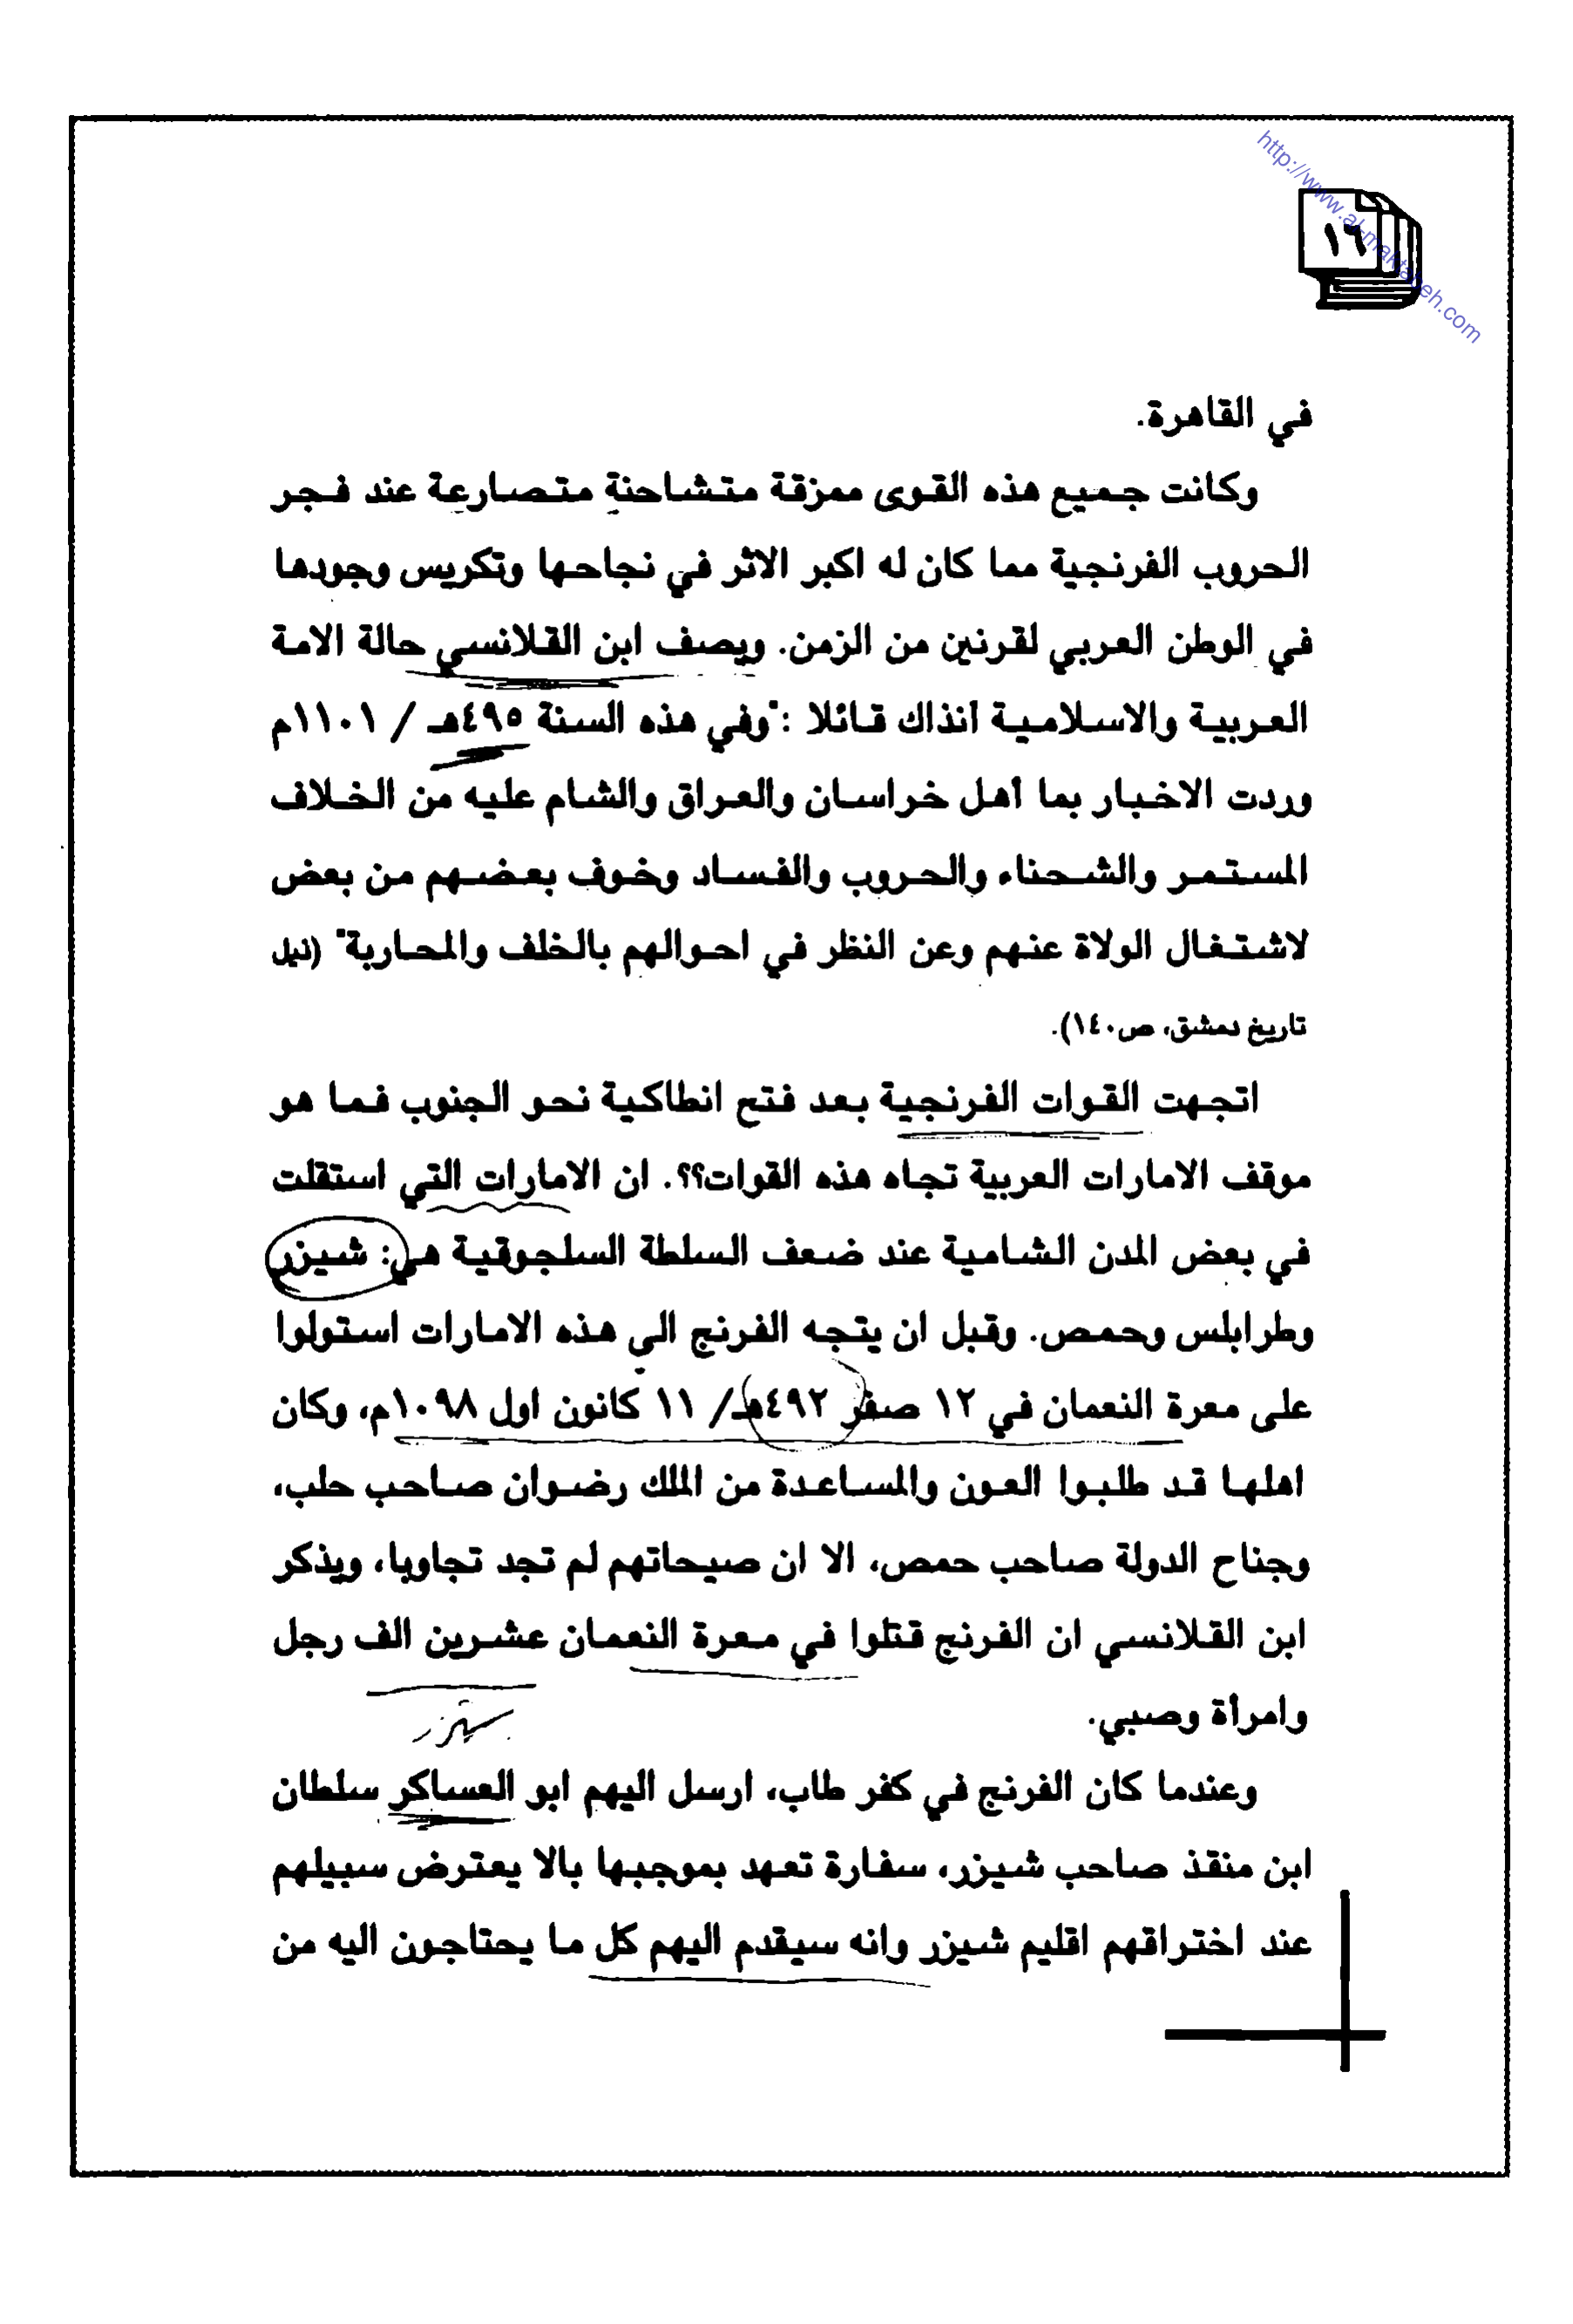 http://www.al-maktabeh.com
١٦
في القاهرة.
وكانت جميع هذه القوى ممزقة متشاحنة متصارعة عند فجر
الحروب الفرنجية مما كان له اكبر الاثر في نجاحها وتكريس وجودها
في الوطن العربي لقرنين من الزمن. ويصف ابن القلانسي حالة الامة
العربية والاسلامية آنذاك قائلا :"وفي هذه السنة ٤٩٥هـ / ١١٠١م
وردت الاخبار بما أهل خراسان والعراق والشام عليه من الخلاف
المستمر والشحناء والحروب والفساد وخوف بعضهم من بعض
لاشتغال الولاة عنهم وعن النظر في احوالهم بالخلف والمحاربة" (ذيل
تاريخ دمشق، ص١٤٠).
اتجهت القوات الفرنجية بعد فتح انطاكية نحو الجنوب فما هو
موقف الامارات العربية تجاه هذه القوات؟؟. ان الامارات التي استقلت
في بعض المدن الشامية عند ضعف السلطة السلجوقية هي: شيزر
وطرابلس وحمص. وقبل ان يتجه الفرنج الى هذه الامارات استولوا
على معرة النعمان في ١٢ صفر ٤٩٢هـ/ ١١ كانون اول ١٠٩٨م، وكان
اهلها قد طلبوا العون والمساعدة من الملك رضوان صاحب حلب،
وجناح الدولة صاحب حمص، الا ان صيحاتهم لم تجد تجاوبا، ويذكر
ابن القلانسي ان الفرنج قتلوا في معرة النعمان عشرين الف رجل
وامرأة وصبي.
شيزر
وعندما كان الفرنج في كفر طاب، ارسل اليهم ابو العساكر سلطان
ابن منقذ صاحب شيزر، سفارة تعهد بموجبها بالا يعترض سبيلهم
عند اختراقهم اقليم شيزر وانه سيقدم اليهم كل ما يحتاجون اليه من